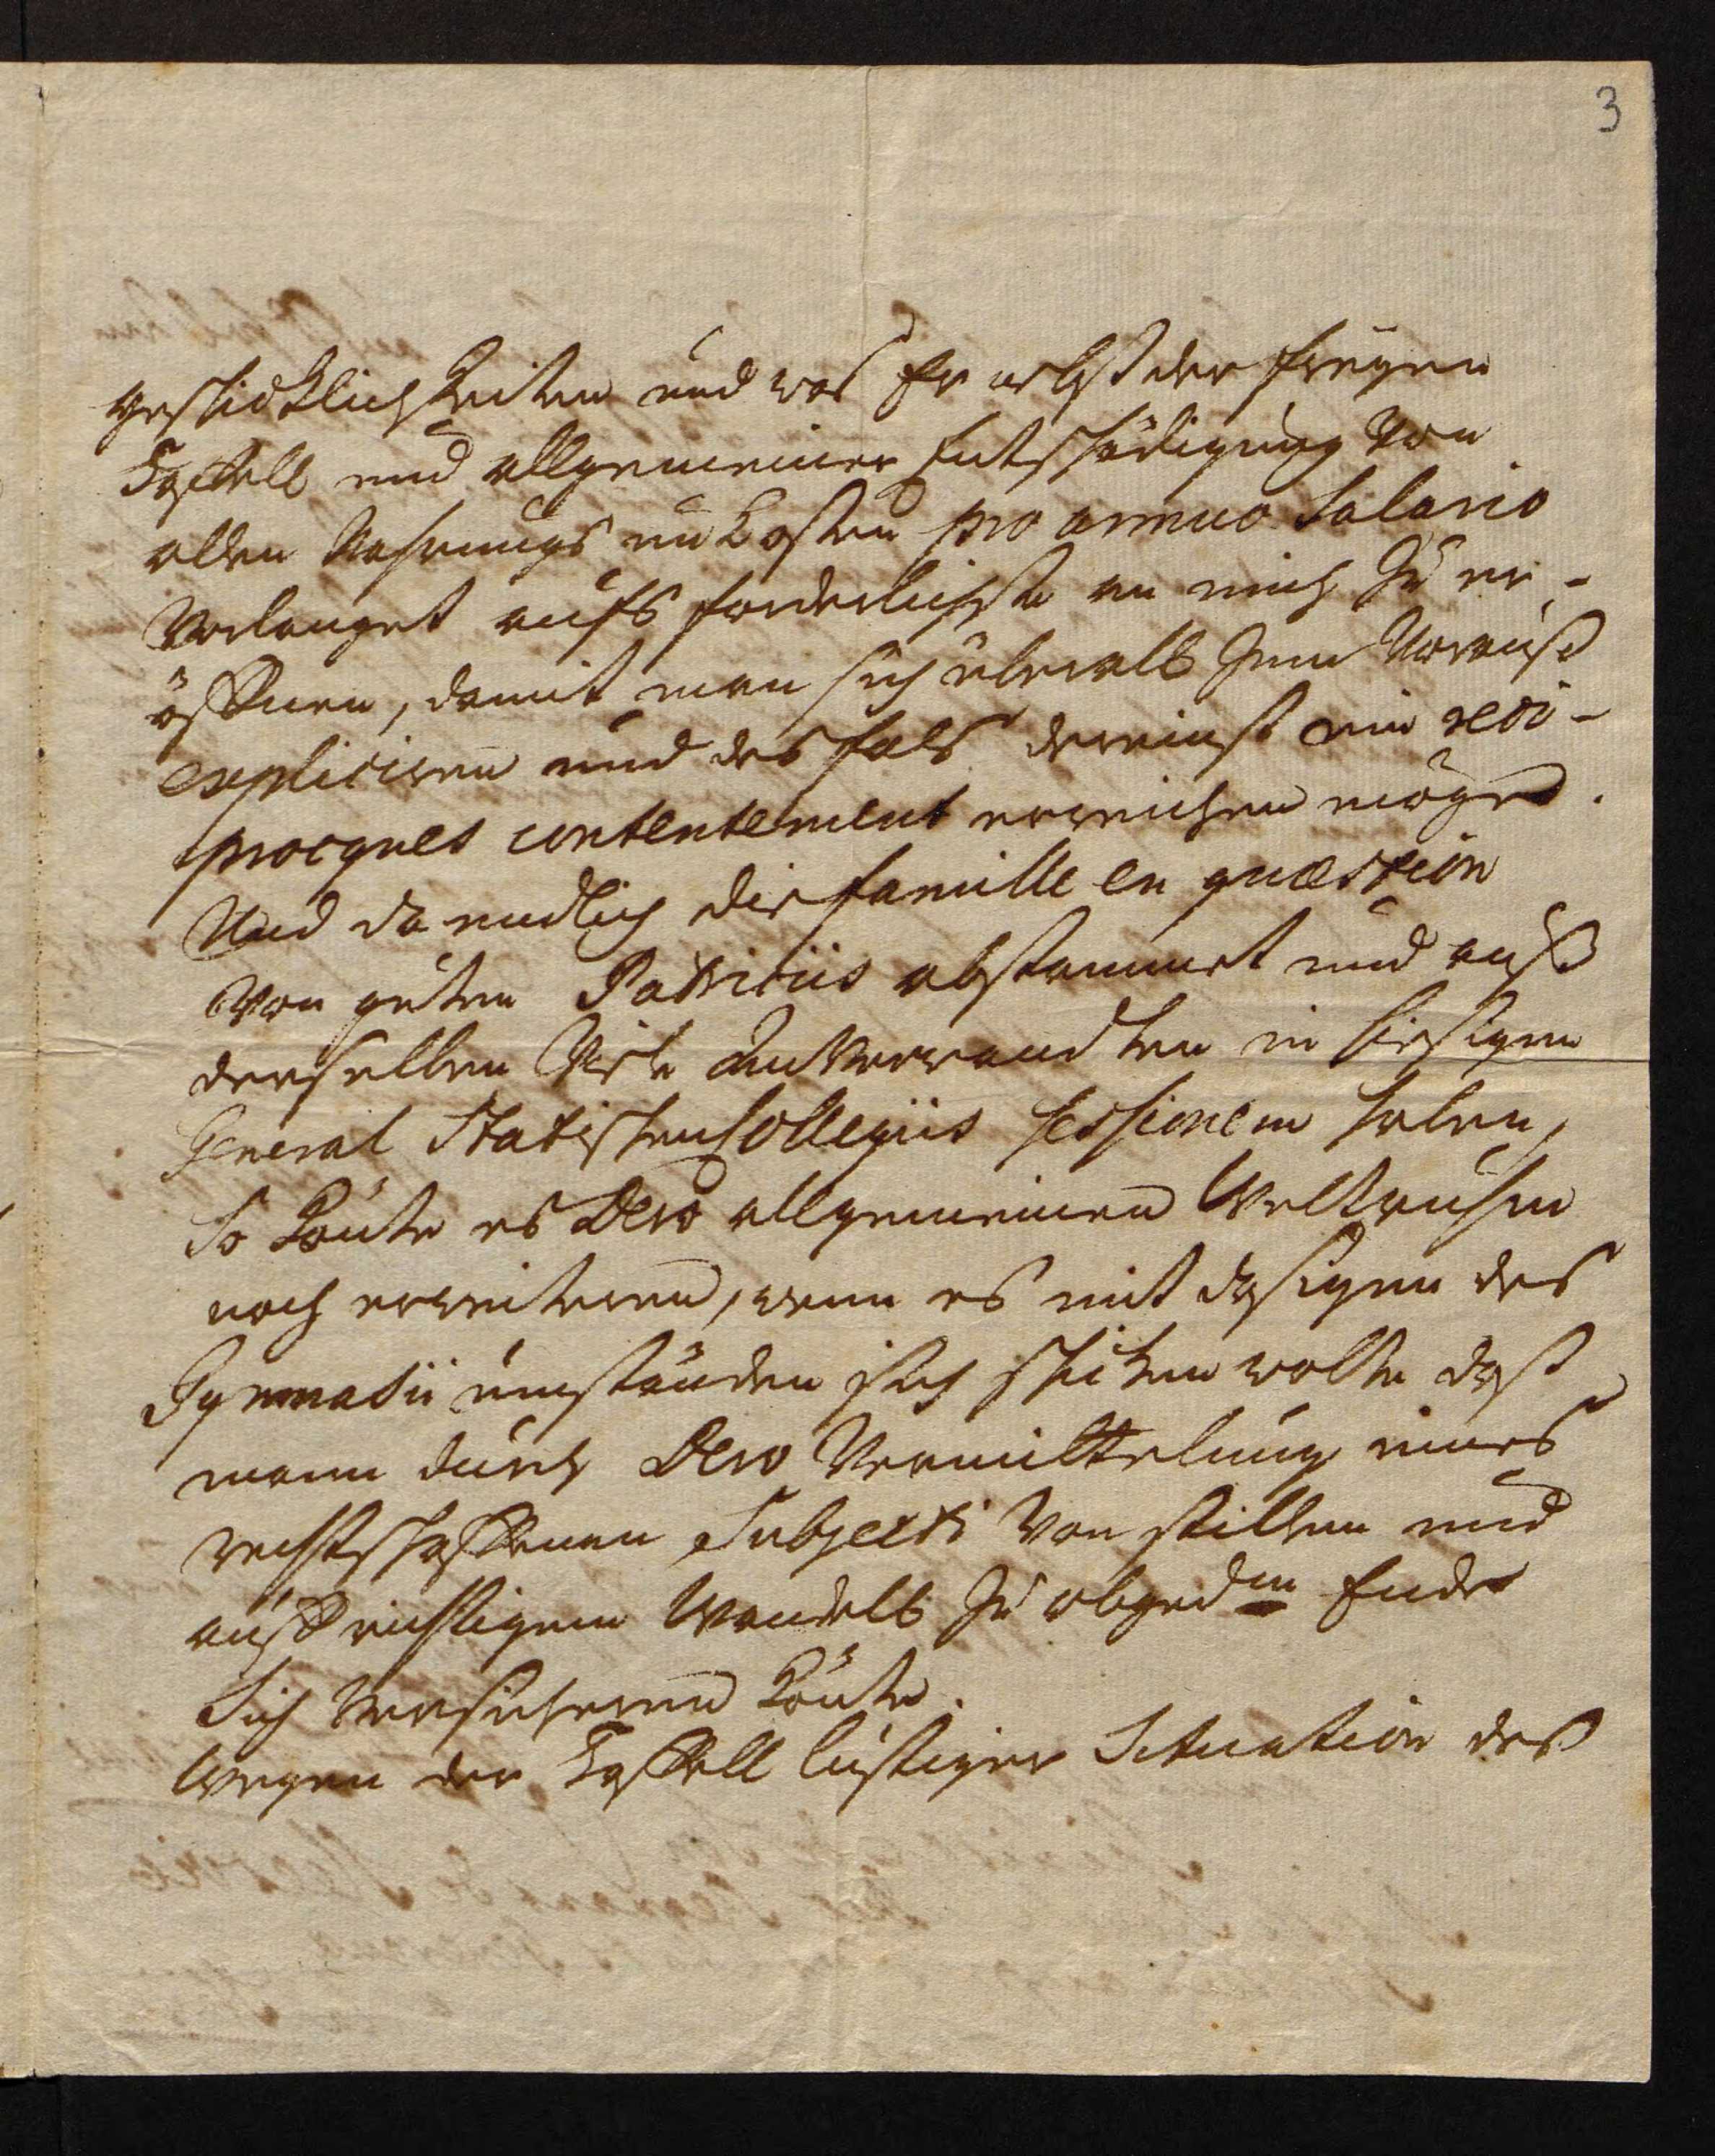 3
geschicklichkeiten und was Er nebst der freyen
Taffell und allgemeiner Entschädigung von
allen Nahrungs unkosten pro annuo Salario
verlanget aufs forderlichste an mich zu er-
öffnen, damit man sich überall zum Vorauß
expliciren und desfals dereinst ein reci-
procques contentement erreichen möge.
Und da endlich die famille en quæstion
von guten Patriciis abstammet und auß
derselben Viele Anverwandten in hiesigen
General Statischen Collegiis sessionem haben,
So könte es Dero allgemeinen Weltruhm
noch erweiteren, wenn es mit dasigen des
Gymnasii umständen sich schicken wolte daß
mann durch Dero Vermittelung eines
rechtschaffenen Subjecti von stillem und
auffrichtigem Wandell zu abged<sup>m</sup> Ende
Sich versicheren könte.
Wegen der Taffell lustiger Situation des